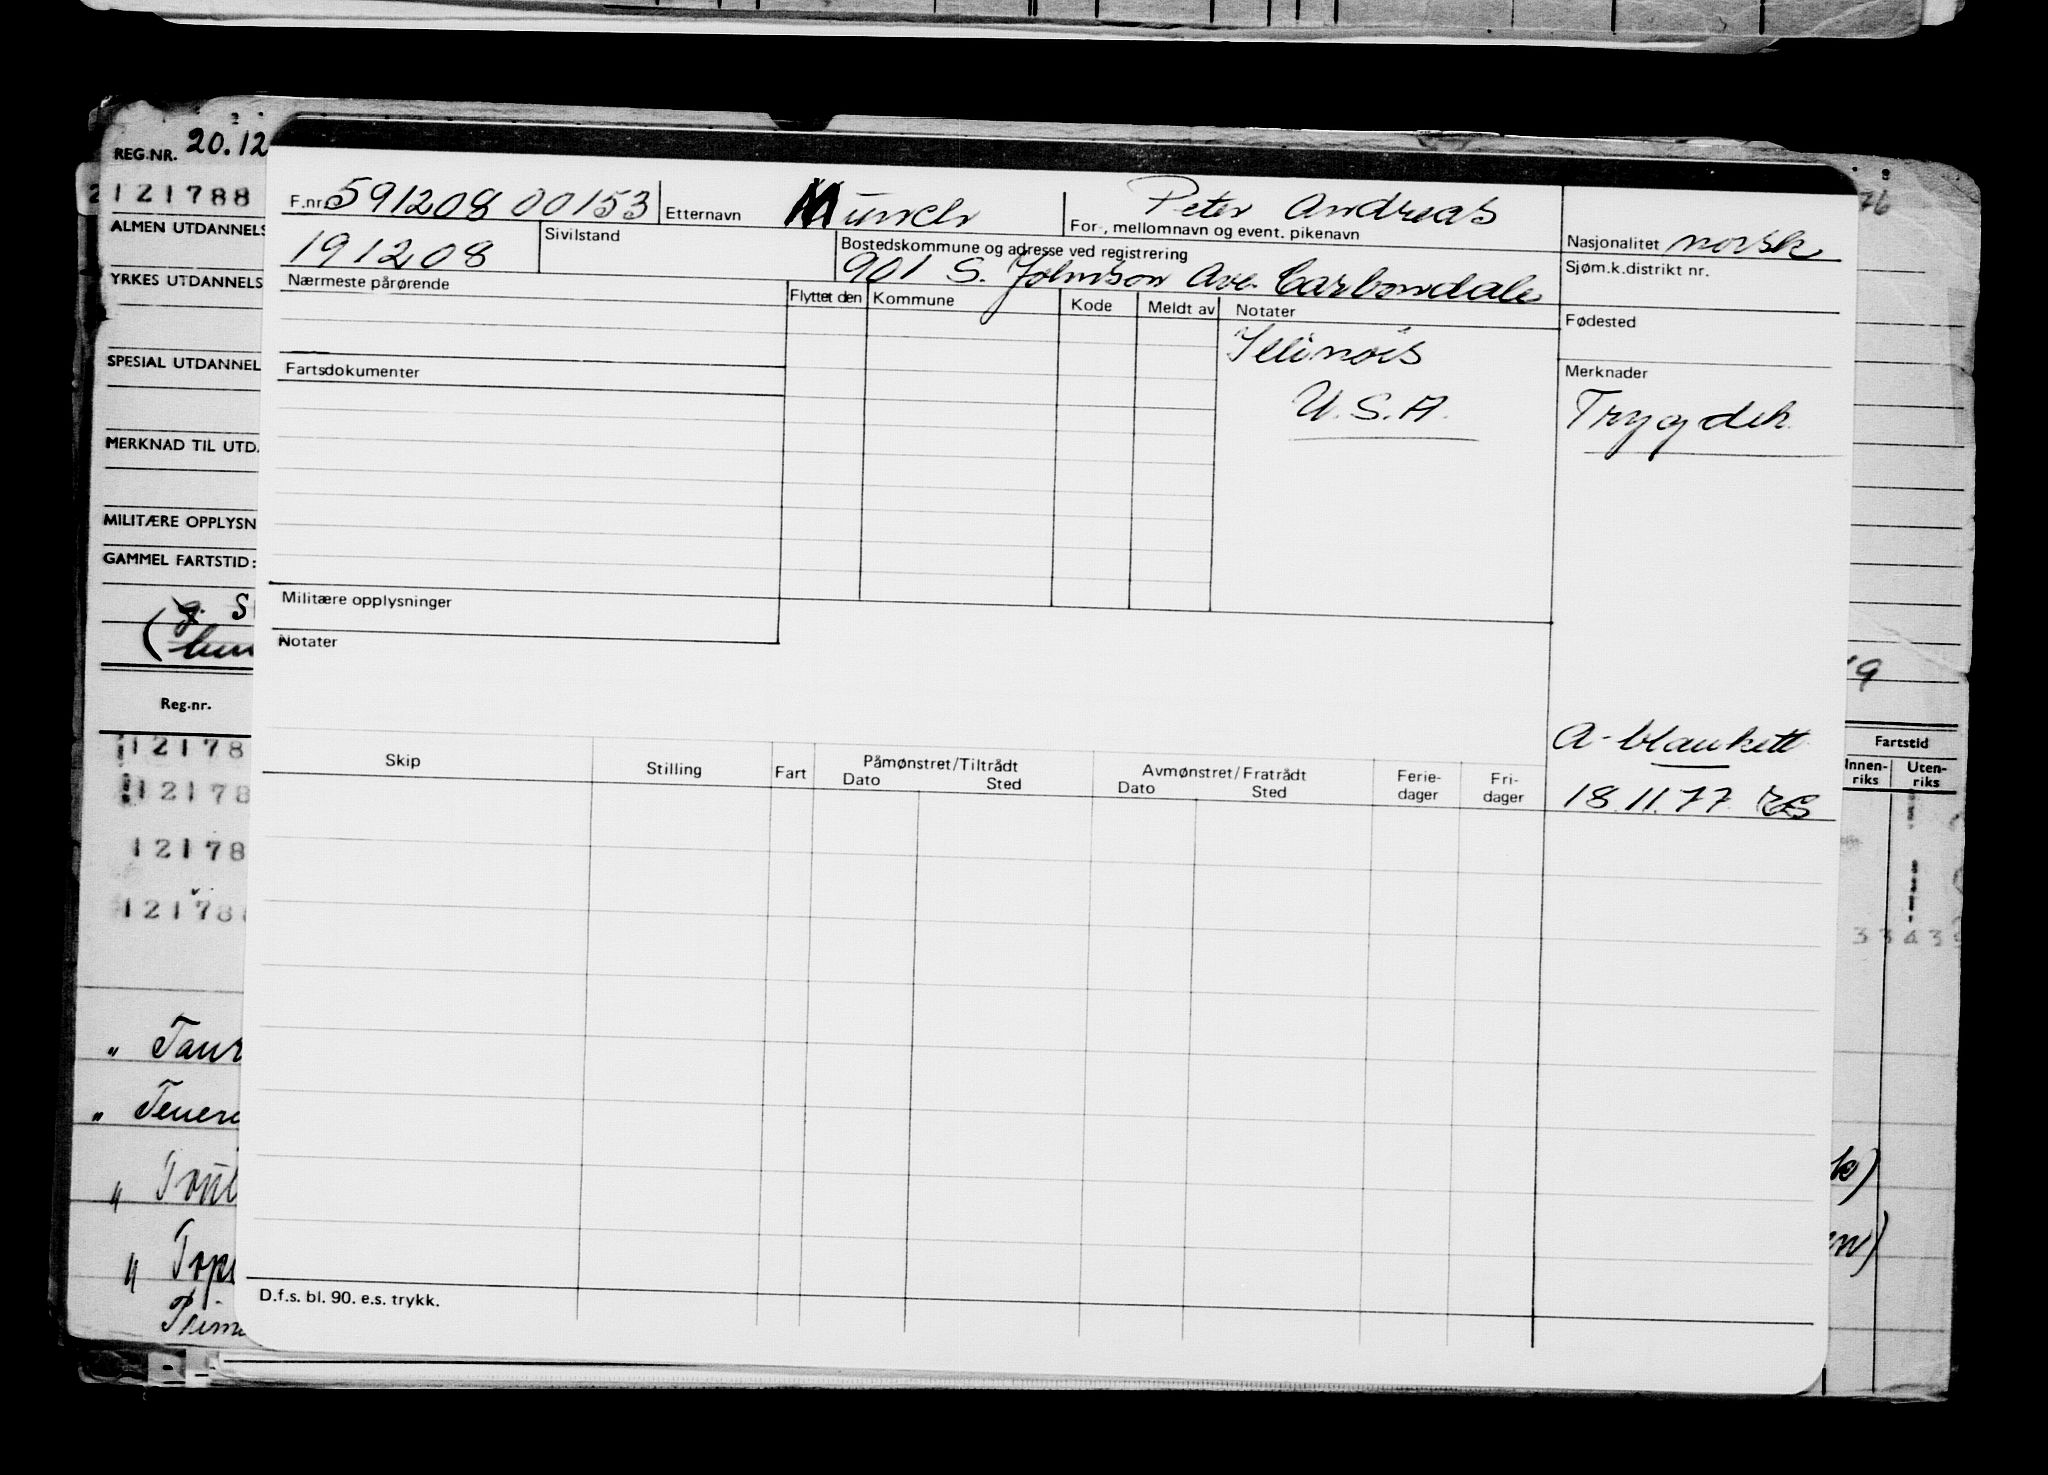 REG.NR. 20.12
121788
ALMEN UTDANNELS
YRKES UTDANNELS
SPESIAL UTDANNEL
MERKNAD TIL UTD.
MILITÆRE OPPLYSN
GAMMEL FARTSTID:
Reg.nr.
12178
12178
12178
12178
" Taur
" Tener
F.nr. 591208 00153 Etternavn Munch Peter Andreas
For-, mellomnavn og event. pikenavn
Nasjonalitet norsk
191208 Sivilstand Bostedskommune og adresse ved registrering
901 S. Johnson Ave. Carbondale
Sjøm.k.distrikt nr.
Nærmeste pårørende Flyttet den Kommune Kode Meldt av Notater
Fødested
Illinois
U.S.A.
Fartsdokumenter
Merknader
Trygdek.
Militære opplysninger
Notater
A-blankett
18.11.77
Skip Stilling Fart Påmønstret/Tiltrådt Dato Sted Avmønstret/Fratrådt Dato Sted Ferie-dager Fri-dager
D.f.s. bl. 90. e.s. trykk.
76
19
Fartstid
Innen-riks Uten-riks
3343
k)
en)